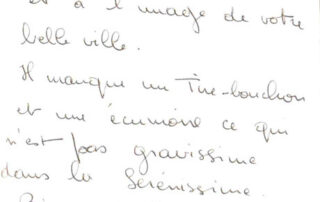 et à l'image de votre
belle ville.
Il manque un Tire-bouchon
et une écumoire ce qui
n'est pas gravissime
dans la Sérénissime.